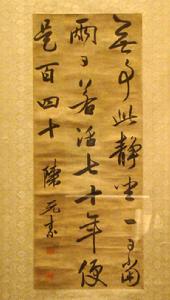 無事此靜坐一日當
兩日若活七十年便
是百四十 陳元素